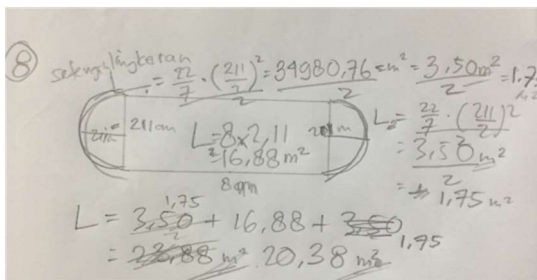 8
setengah lingkaran
= 22/7 · (211/2)² = 34980,76 cm² = 3,50 m² = 1,7
2 2
211 cm
L = 8 × 2,11
= 16,88 m²
8 cm
L = 22/7 · (211/2)²
= 3,50 m²
2
= 1,75 m²
1,75
L = 3,50 + 16,88 + 3,50 1,75
= 23,88 m² 20,38 m²